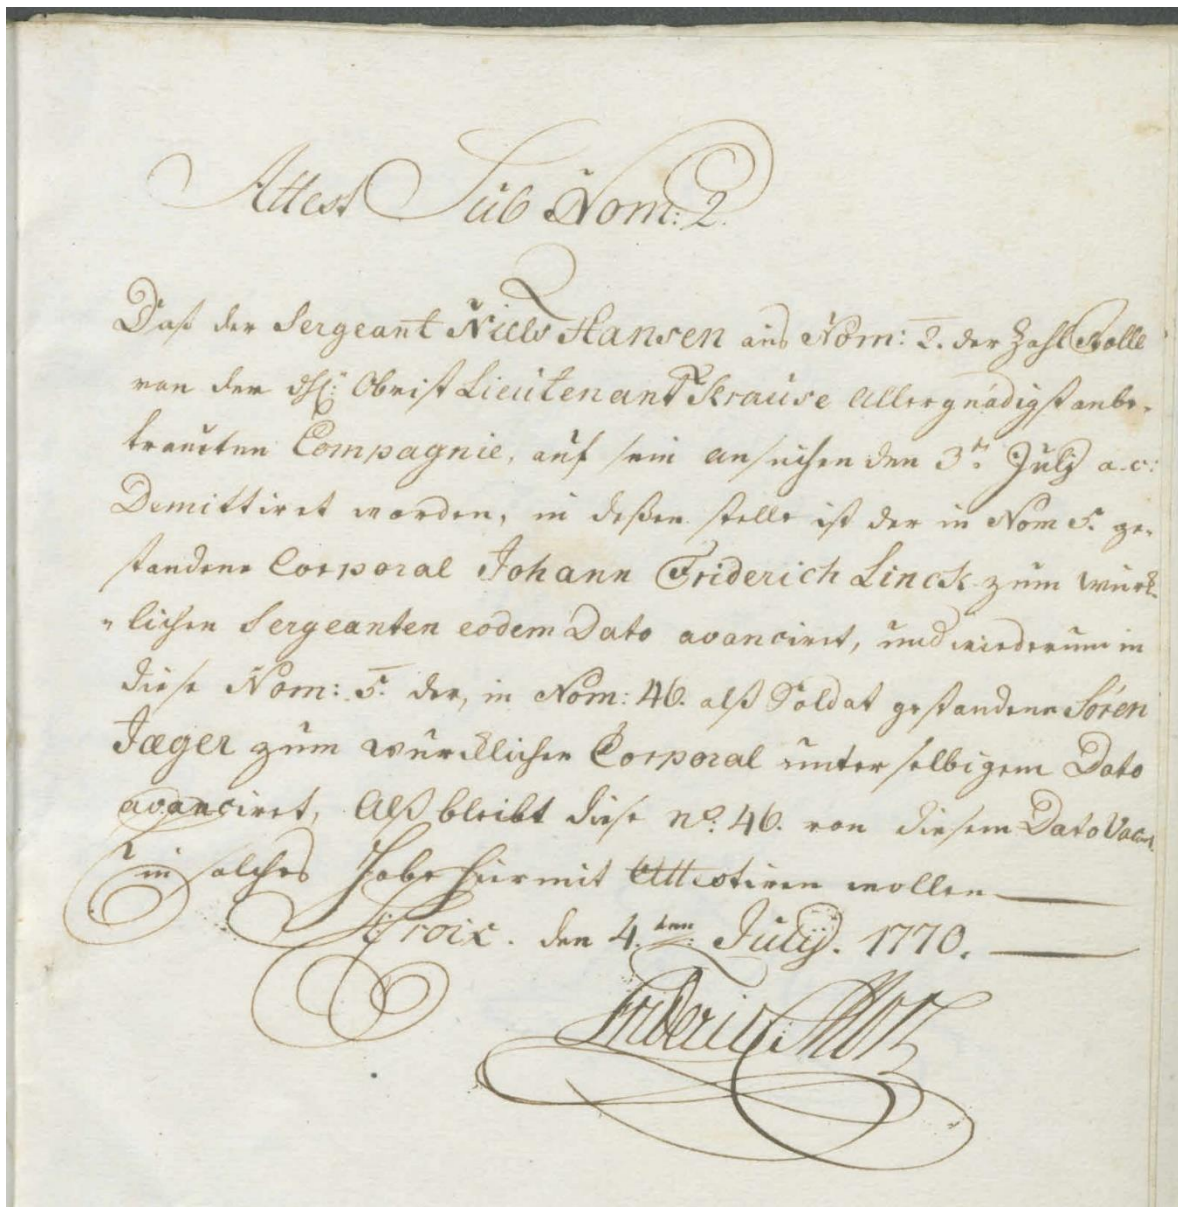 Attest Sub Nom: 2.
Daß der Sergeant Niels Hansen aus Nom: 2. der Zahl Rolle
von der Obrist Lieutenant Krause Allergnädigst anbe-
trauten Compagnie, auf sein ansuchen den 3t. July a. c:
Demittiret worden, in deßen stelle ist der in Nom 5. ge-
standene Corporal Johann Friderich Linck zum würk-
lichen Sergeanten eodem Dato avanciret, und wiederum in
diese Nom: 5. der, in Nom: 46. alß Soldat gestandene Sören
Jæger zum würcklichen Corporal unter selbigem Dato
avanciret, Alß bleibt diese no. 46. von diesem Dato Vacant.
solches Habe hiermit Attestiren wollen
St Croix. den 4.ten July. 1770.
Frideric